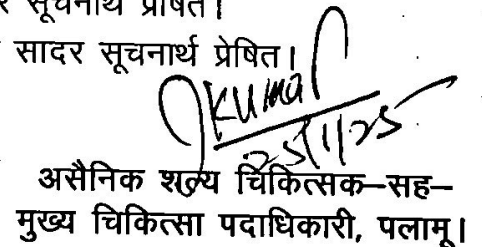 सूचनार्थ प्रेषित।
सादर सूचनार्थ प्रेषित।
Kumar
25/11/25
असैनिक शल्य चिकित्सक–सह–
मुख्य चिकित्सा पदाधिकारी, पलामू।